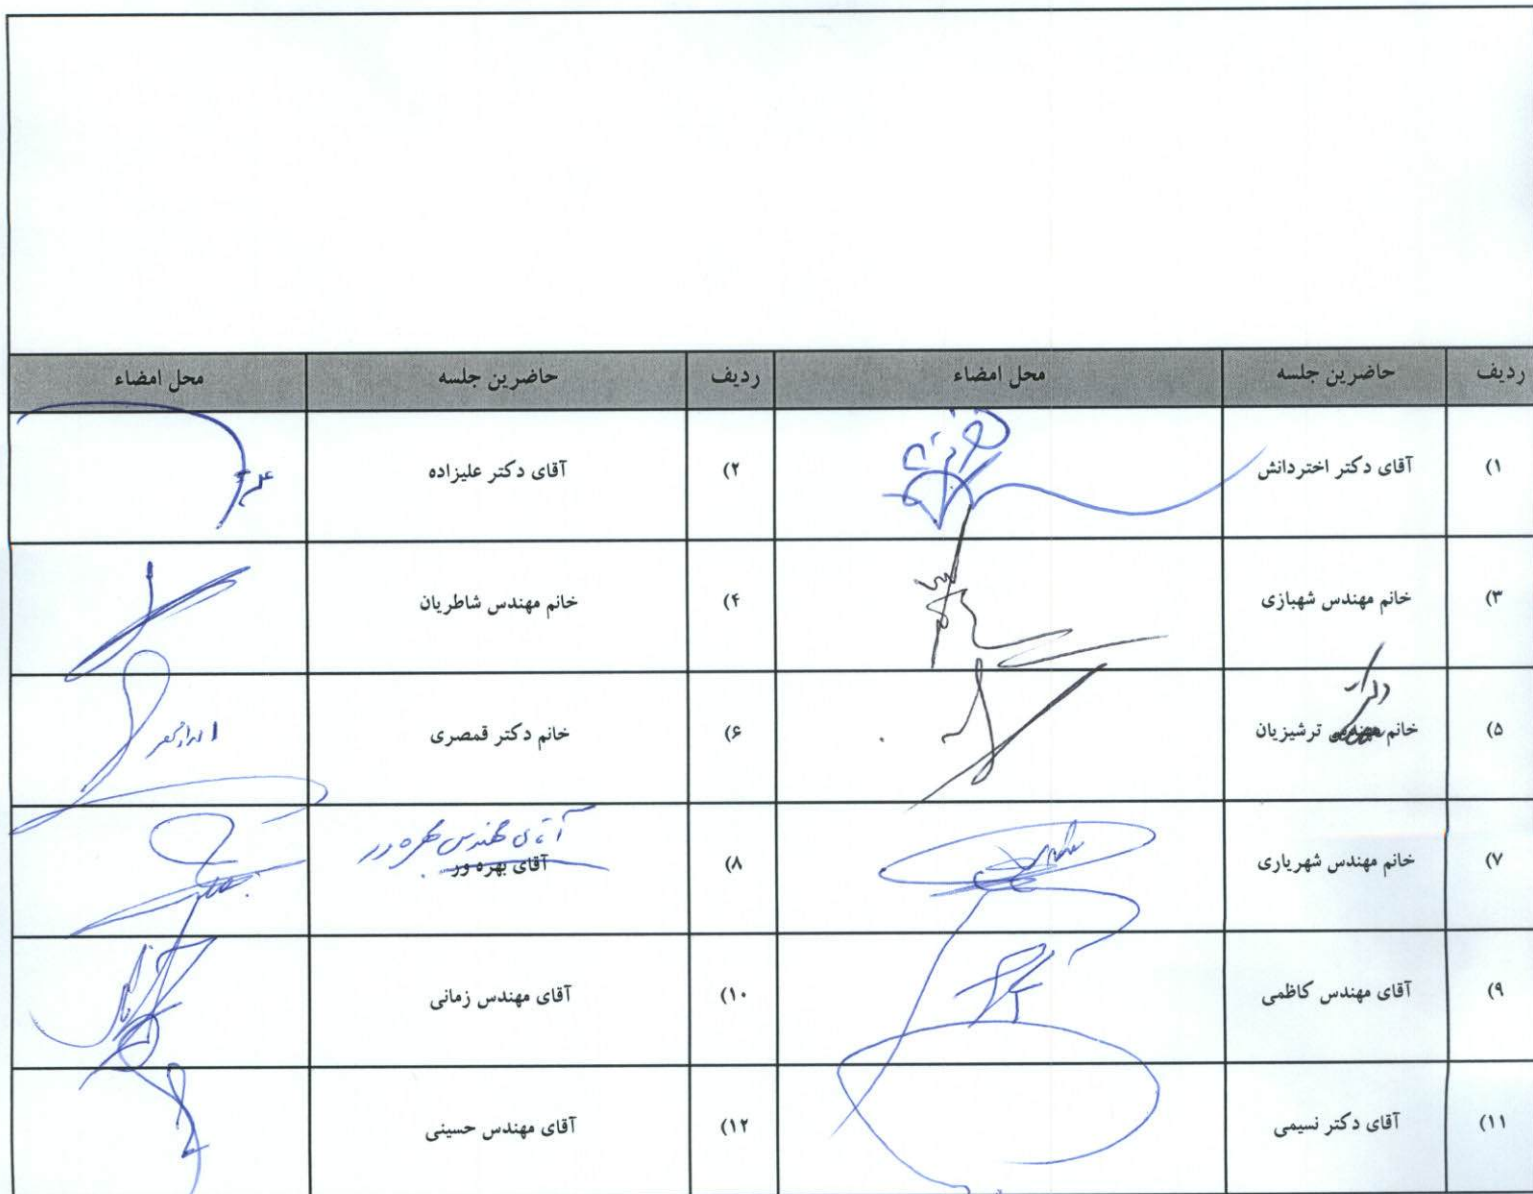 ردیف حاضرین جلسه محل امضاء ردیف حاضرین جلسه محل امضاء
۱) آقای دکتر اختردانش ۲) آقای دکتر علیزاده
۳) خانم مهندس شهبازی ۴) خانم مهندس شاطریان
دکتر
۵) خانم مهندس ترشیزیان ۶) خانم دکتر قمصری
آقای مهندس بهره ور
۷) خانم مهندس شهریاری ۸) آقای بهره ور
۹) آقای مهندس کاظمی ۱۰) آقای مهندس زمانی
۱۱) آقای دکتر نسیمی ۱۲) آقای مهندس حسینی